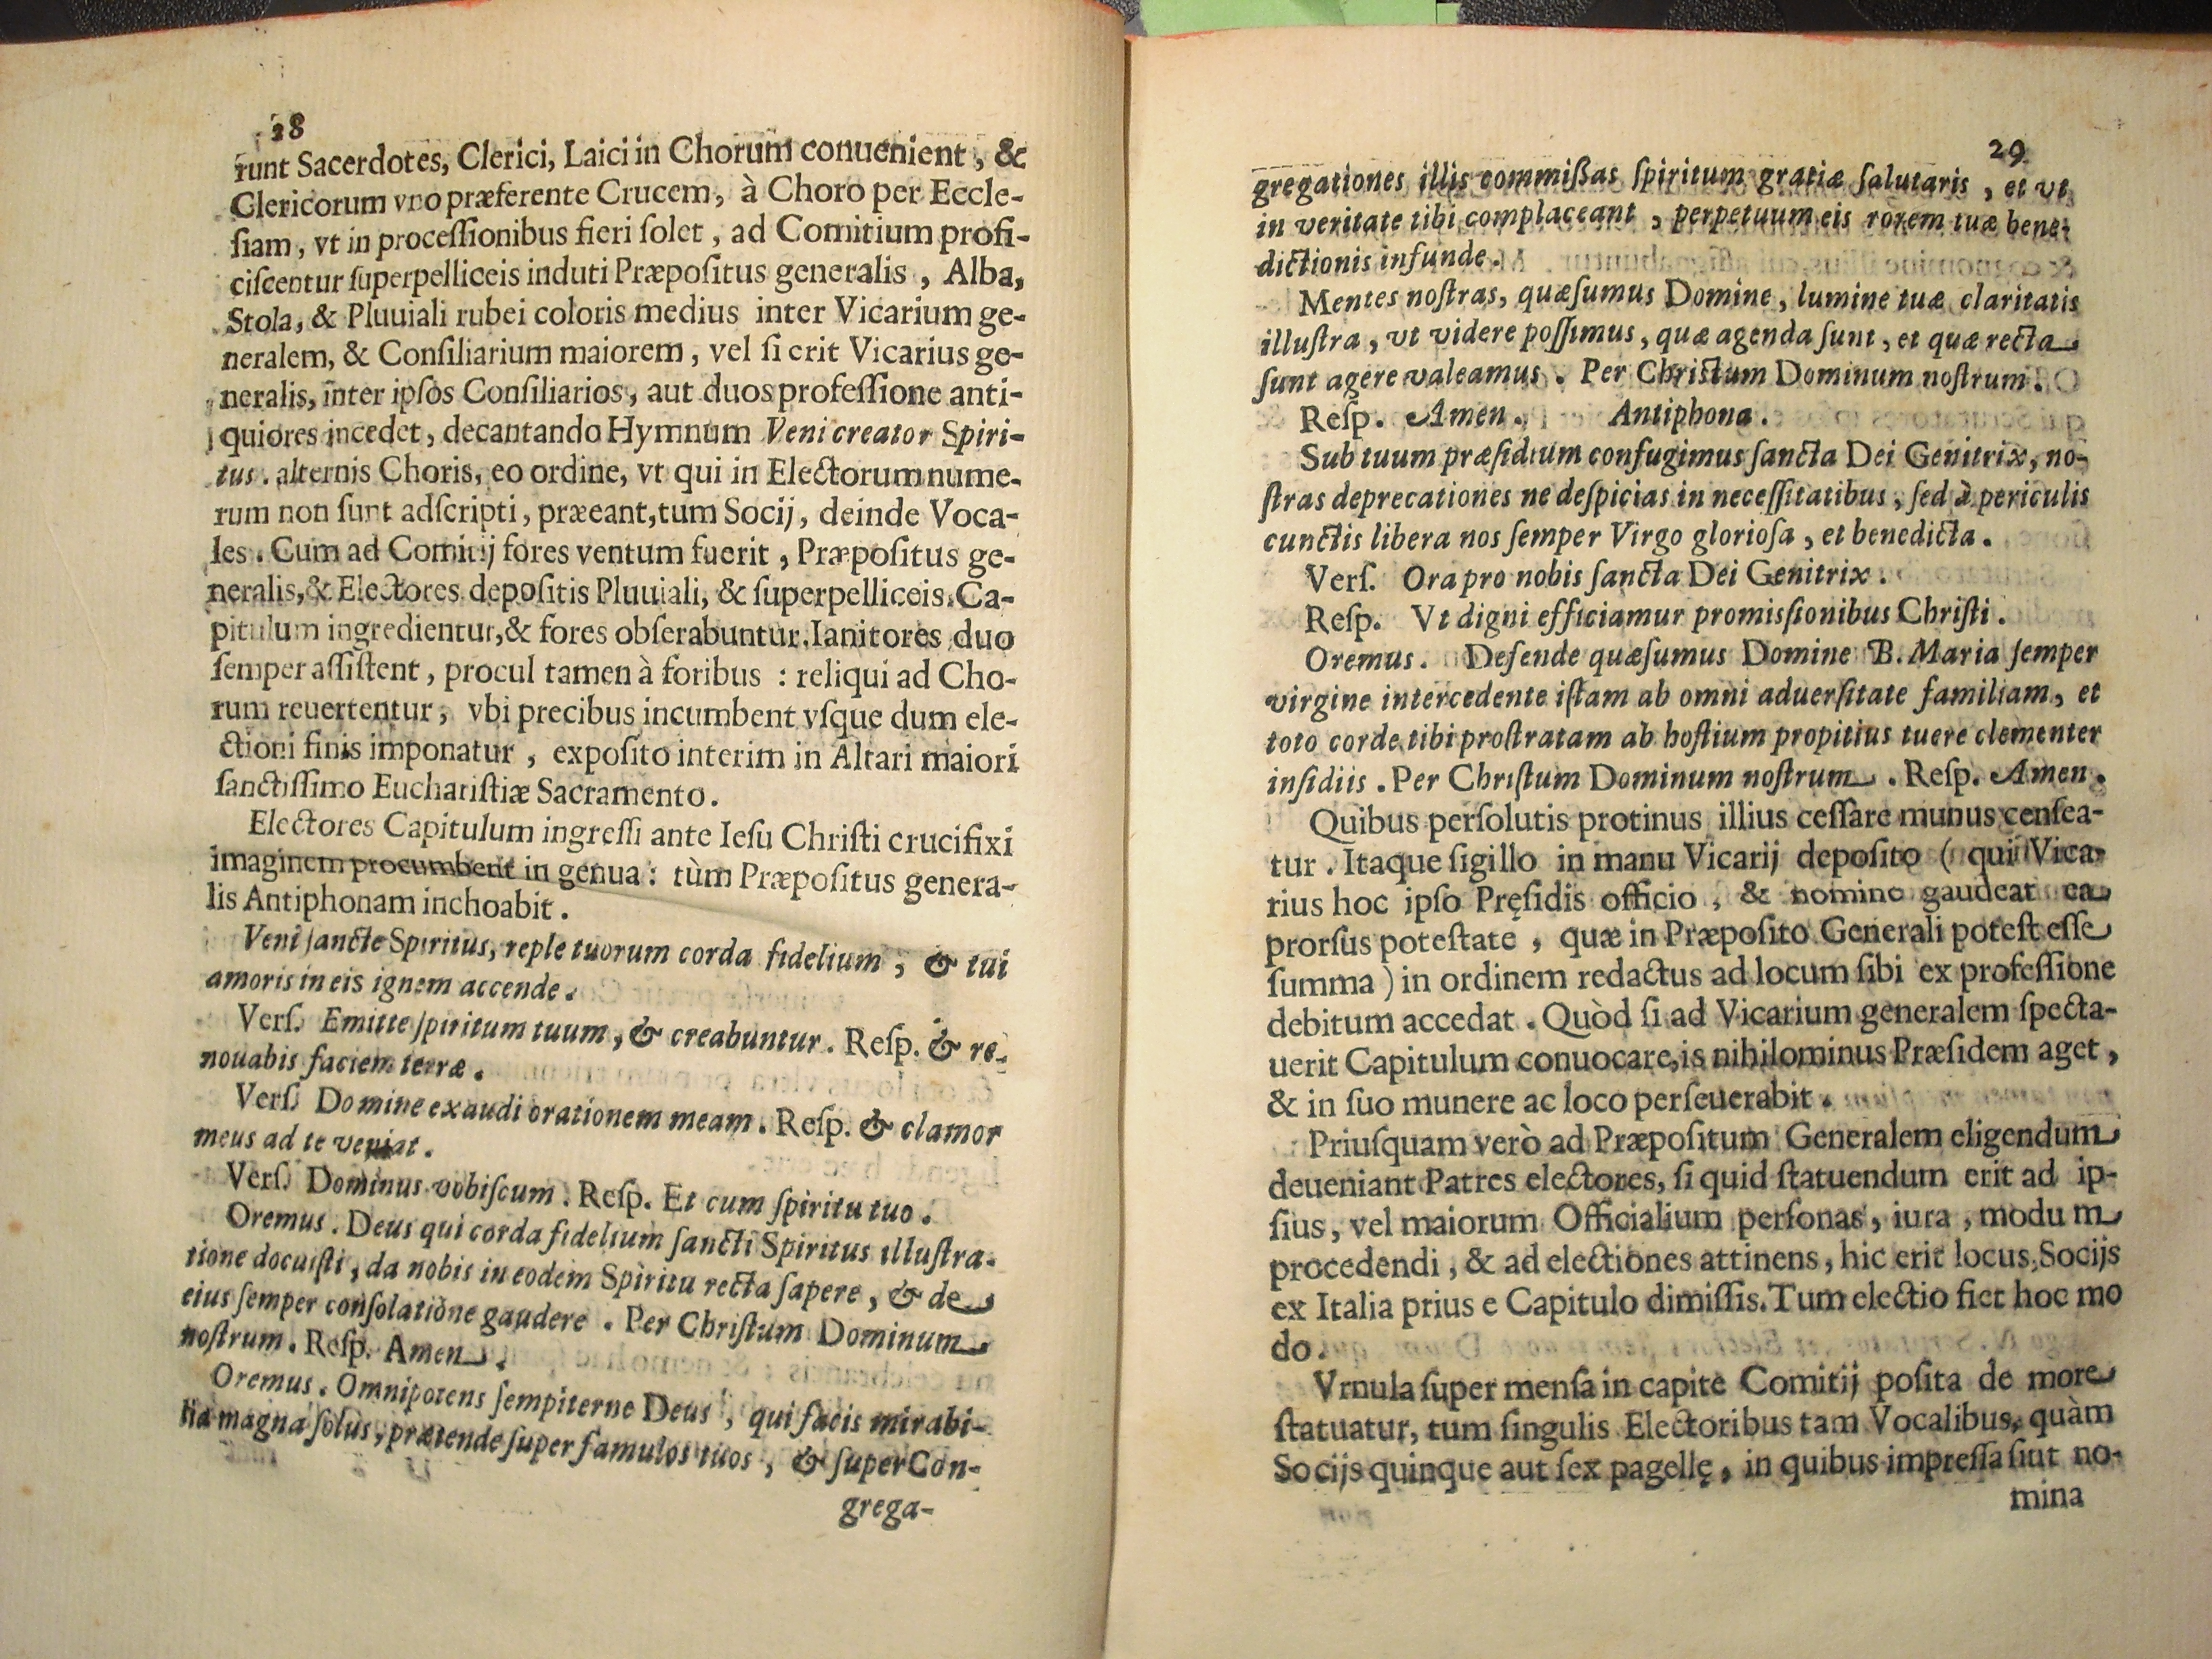 28
runt Sacerdotes, Clerici, Laici in Chorum conuenient, &
Clericorum vno præferente Crucem, à Choro per Eccle-
ſiam, vt in proceſſionibus fieri ſolet, ad Comitium profi-
ciſcentur ſuperpelliceis induti Præpoſitus generalis, Alba,
Stola, & Pluuiali rubei coloris medius inter Vicarium ge-
neralem, & Conſiliarium maiorem, vel ſi erit Vicarius ge-
neralis, inter ipſos Conſiliarios, aut duos profeſſione anti-
quiores incedet, decantando Hymnum Veni creator Spiri-
tus. alternis Choris, eo ordine, vt qui in Electorum nume-
rum non ſunt adſcripti, præeant, tum Socij, deinde Voca-
les. Cum ad Comitij fores ventum fuerit, Præpoſitus ge-
neralis, & Electores depoſitis Pluuiali, & ſuperpelliceis. Ca-
pitulum ingredientur, & fores obſerabuntur. Ianitores duo
ſemper aſſiſtent, procul tamen à foribus : reliqui ad Cho-
rum reuertentur, vbi precibus incumbent vſque dum ele-
ctioni finis imponatur, expoſito interim in Altari maiori
ſanctiſſimo Euchariſtiæ Sacramento.
Electores Capitulum ingreſſi ante Ieſu Chriſti crucifixi
imaginem procumbent in genua : tùm Præpoſitus genera-
lis Antiphonam inchoabit.
Veni ſancte Spiritus, reple tuorum corda fidelium, & tui
amoris in eis ignem accende.
Verſ. Emitte ſpiritum tuum, & creabuntur. Reſp. & re-
nouabis faciem terræ.
Verſ. Domine exaudi orationem meam. Reſp. & clamor
meus ad te veniat.
Verſ. Dominus vobiſcum. Reſp. Et cum ſpiritu tuo.
Oremus. Deus qui corda fidelium ſancti Spiritus illuſtra-
tione docuiſti, da nobis in eodem Spiritu recta ſapere, & de
eius ſemper conſolatione gaudere. Per Chriſtum Dominum
noſtrum. Reſp. Amen.
Oremus. Omnipotens ſempiterne Deus, qui facis mirabi-
lia magna ſolus, prætende ſuper famulos tuos, & ſuper Con-
grega-
29
gregationes illis commiſſas ſpiritum gratiæ ſalutaris, et vt
in veritate tibi complaceant, perpetuum eis rorem tuæ bene-
dictionis infunde.
Mentes noſtras, quæſumus Domine, lumine tuæ claritatis
illuſtra, vt videre poſſimus, quæ agenda ſunt, et quæ recta
ſunt agere valeamus. Per Chriſtum Dominum noſtrum.
Reſp. Amen. Antiphona.
Sub tuum præſidium confugimus ſancta Dei Genitrix, no-
ſtras deprecationes ne deſpicias in neceſſitatibus, ſed à periculis
cunctis libera nos ſemper Virgo glorioſa, et benedicta.
Verſ. Ora pro nobis ſancta Dei Genitrix.
Reſp. Vt digni efficiamur promiſſionibus Chriſti.
Oremus. Defende quæſumus Domine B. Maria ſemper
virgine intercedente iſtam ab omni aduerſitate familiam, et
toto corde tibi proſtratam ab hoſtium propitius tuere clementer
inſidiis. Per Chriſtum Dominum noſtrum. Reſp. Amen.
Quibus perſolutis protinus illius ceſſare munus cenſea-
tur. Itaque ſigillo in manu Vicarij depoſito ( qui Vica-
rius hoc ipſo Pręſidis officio, & nomine gaudeat ea
prorſus poteſtate, quæ in Præpoſito Generali poteſt eſſe
ſumma ) in ordinem redactus ad locum ſibi ex profeſſione
debitum accedat. Quòd ſi ad Vicarium generalem ſpecta-
uerit Capitulum conuocare, is nihilominus Præſidem aget,
& in ſuo munere ac loco perſeuerabit.
Priuſquam verò ad Præpoſitum Generalem eligendum
deueniant Patres electores, ſi quid ſtatuendum erit ad ip-
ſius, vel maiorum Officialium perſonas, iura, modum
procedendi, & ad electiones attinens, hic erit locus, Socijs
ex Italia prius e Capitulo dimiſſis. Tum electio fiet hoc mo
do.
Vrnula ſuper menſa in capite Comitij poſita de more
ſtatuatur, tum ſingulis Electoribus tam Vocalibus, quàm
Socijs quinque aut ſex pagellę, in quibus impreſſa ſint no-
mina